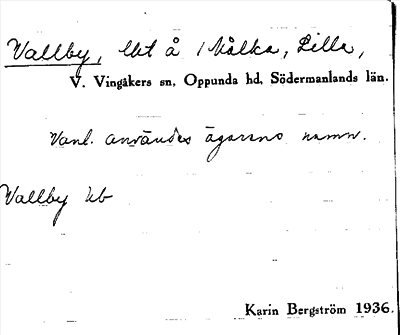 Vallby, lht å 1 Målka, Lilla,
V. Vingåkers sn, Oppunda hd, Södermanlands län.
Vanl. användes ägarens namn.
Vallby
Karin Bergström 1936.